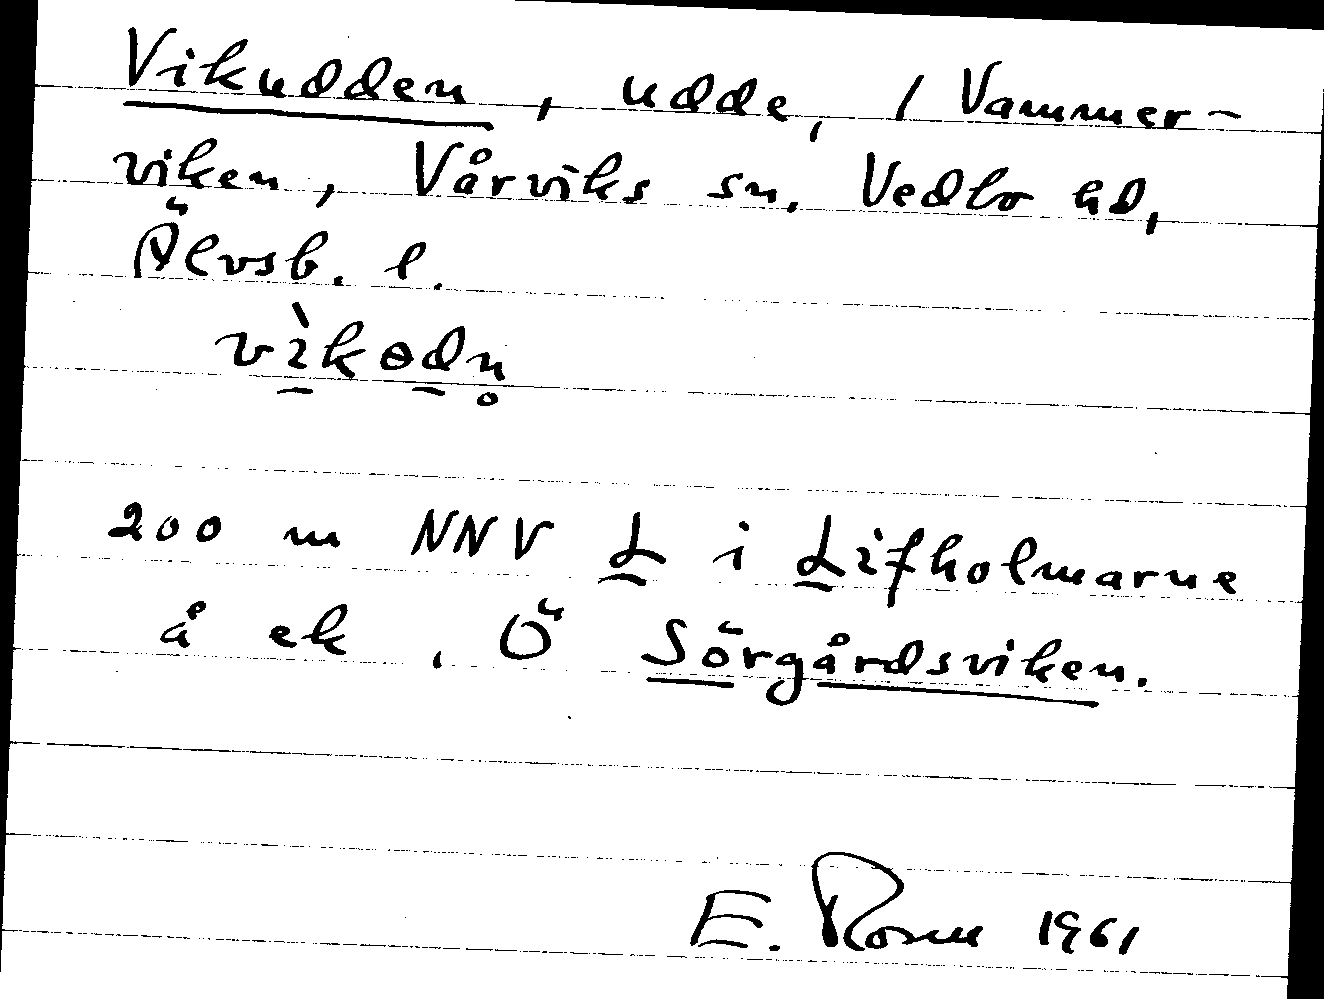 Vikudden, udde, / Vammer-
viken, Vårviks sn. Vedbo hd,
Älvsb. l.
vìkɵdn̥
200 m NNV L i Lifholmarne
å ek, Ö Sörgårdsviken.
E. Rosell 1961